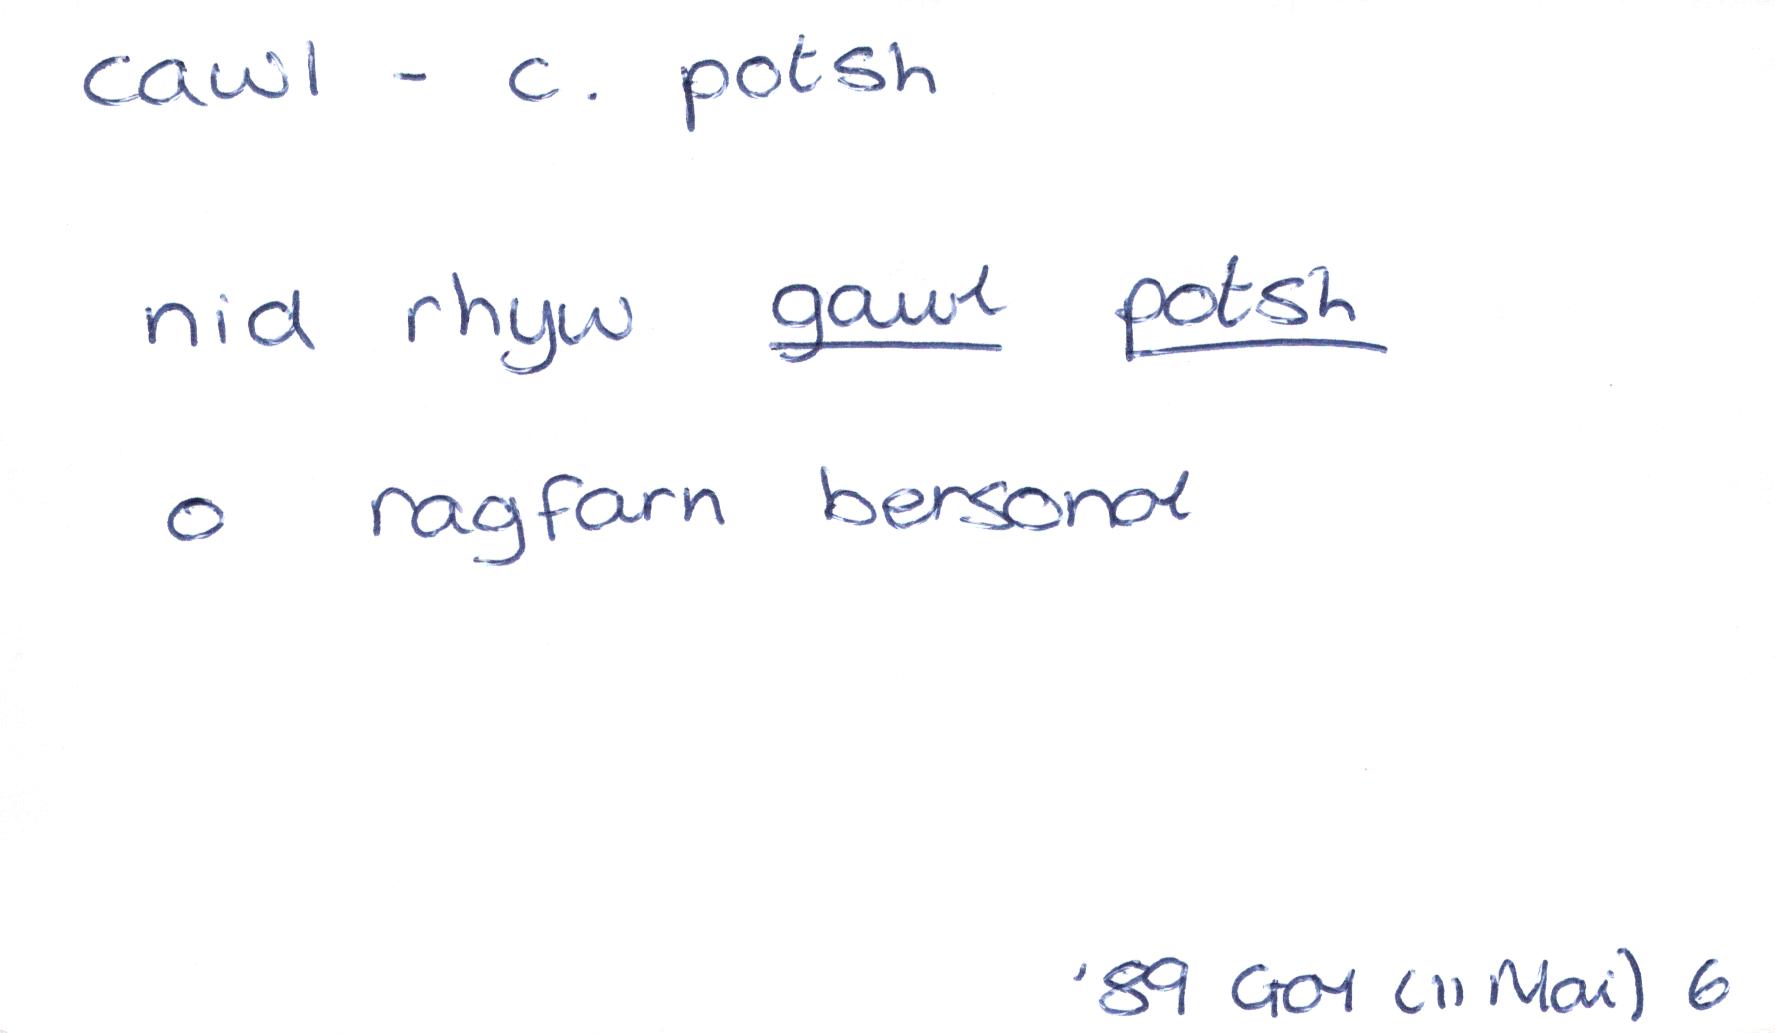 cawl - c. potsh
nid rhyw gawl potsh
o ragfarn bersonol
'89 Gol (11 Mai) 6